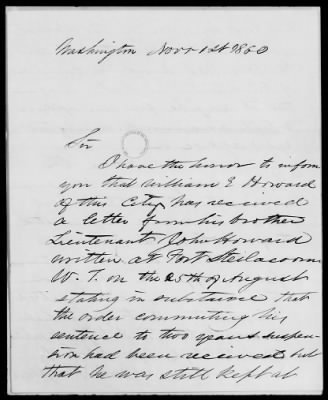 Washington Novr 1st 1860
Sir
I have the honor to inform
you that William E Howard
of this City has received
a letter from his brother
Lieutenant John Howard
written at Fort Steilacoom
W. T. on the 25th of August
stating in substance that
the order commuting his
sentence to two years suspen-
sion had been received but
that he was still kept at